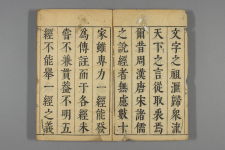 文字之祖滙歸衆流
天下之言從取裘焉
爾昔周漢唐宋諸儒
之說經者無慮數十
家雖專力一經能發
爲傳註而于各經未
嘗不兼貫蓋不明五
經不能舉一經之義